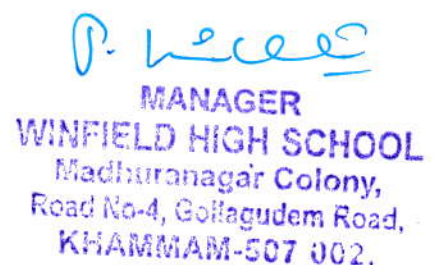 P.
MANAGER
WINFIELD HIGH SCHOOL
Madhuranagar Colony,
Road No-4, Gollagudem Road,
KHAMMAM-507 002.